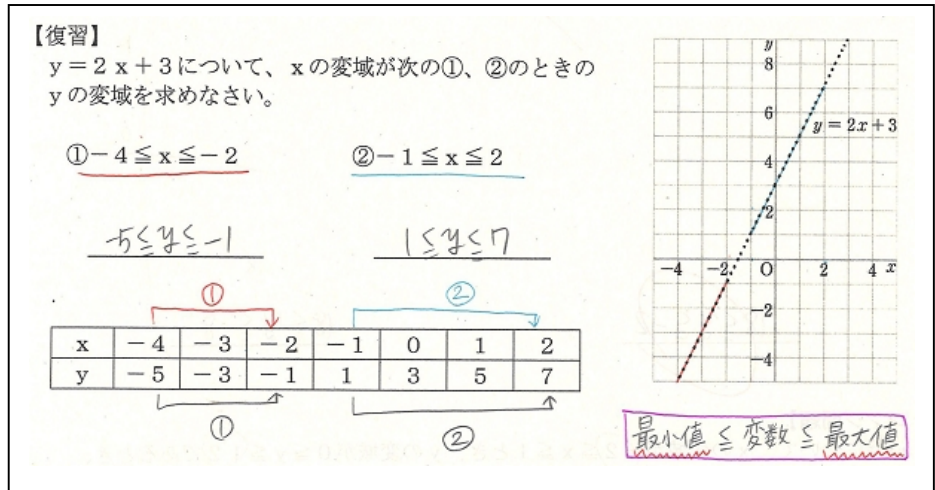 【復習】
y＝2x＋3について、xの変域が次の①、②のときの
yの変域を求めなさい。
①－4≦x≦－2
②－1≦x≦2
-5≦y≦-1
1≦y≦7
①
②
x －4 －3 －2 －1 0 1 2
y －5 －3 －1 1 3 5 7
①
②
y
8
6
y=2x+3
4
2
−4 −2 O 2 4 x
−2
−4
最小値≦変数≦最大値